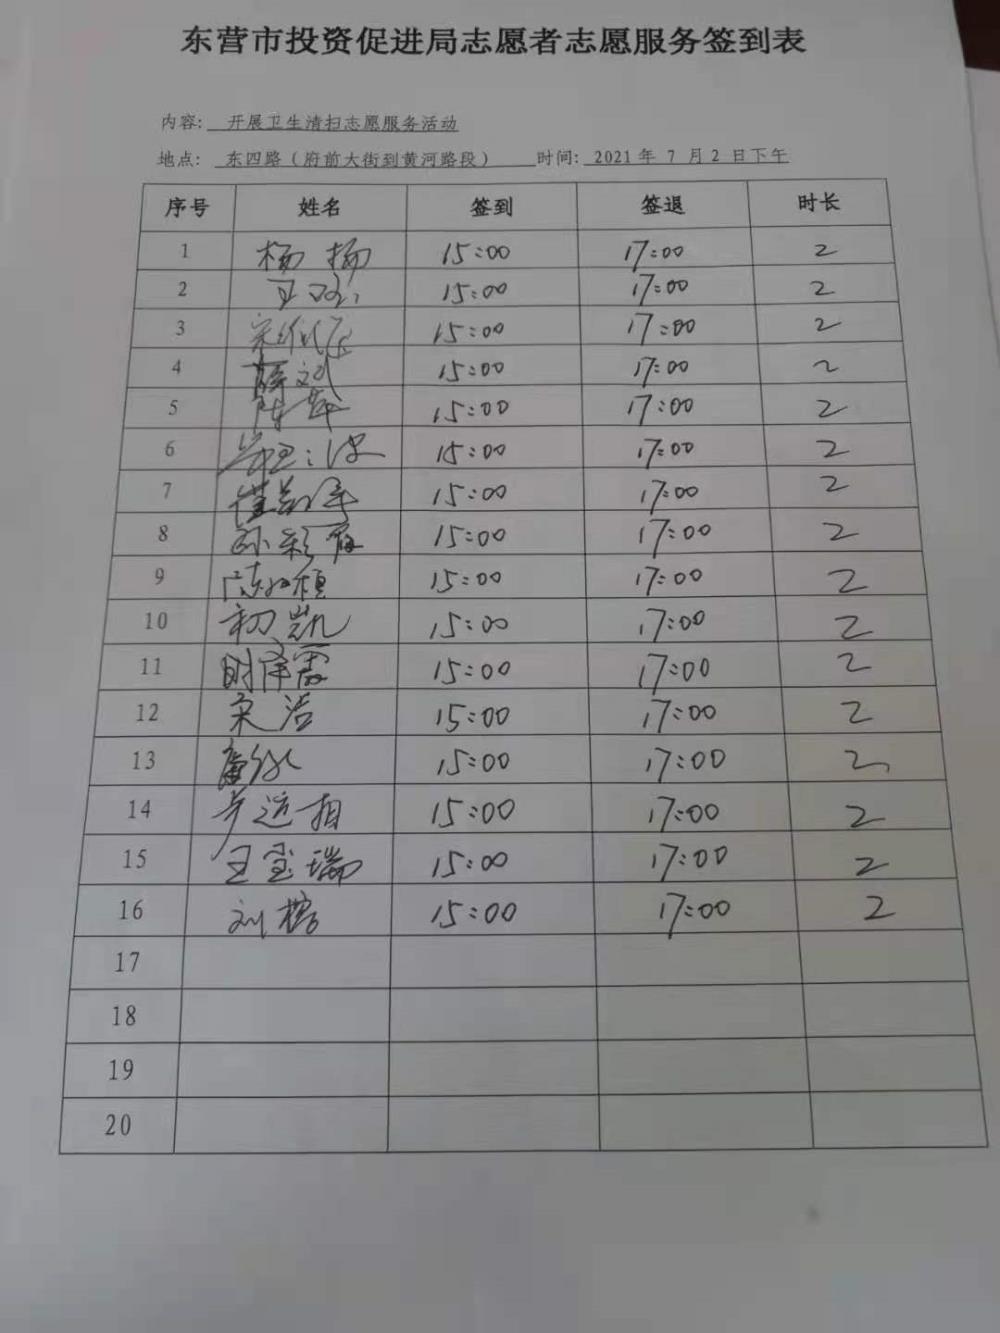 东营市投资促进局志愿者志愿服务签到表
内容: 开展卫生清扫志愿服务活动
地点: 东四路（府前大街到黄河路段） 时间: 2021年7月2日下午
序号 姓名 签到 签退 时长
1 杨扬 15:00 17:00 2
2 15:00 17:00 2
3 15:00 17:00 2
4 薛斌 15:00 17:00 2
5 15:00 17:00 2
6 15:00 17:00 2
7 15:00 17:00 2
8 孙彩霞 15:00 17:00 2
9 15:00 17:00 2
10 初凯 15:00 17:00 2
11 时泽霞 15:00 17:00 2
12 宋洁 15:00 17:00 2
13 15:00 17:00 2
14 15:00 17:00 2
15 王玺瑞 15:00 17:00 2
16 刘榕 15:00 17:00 2
17
18
19
20